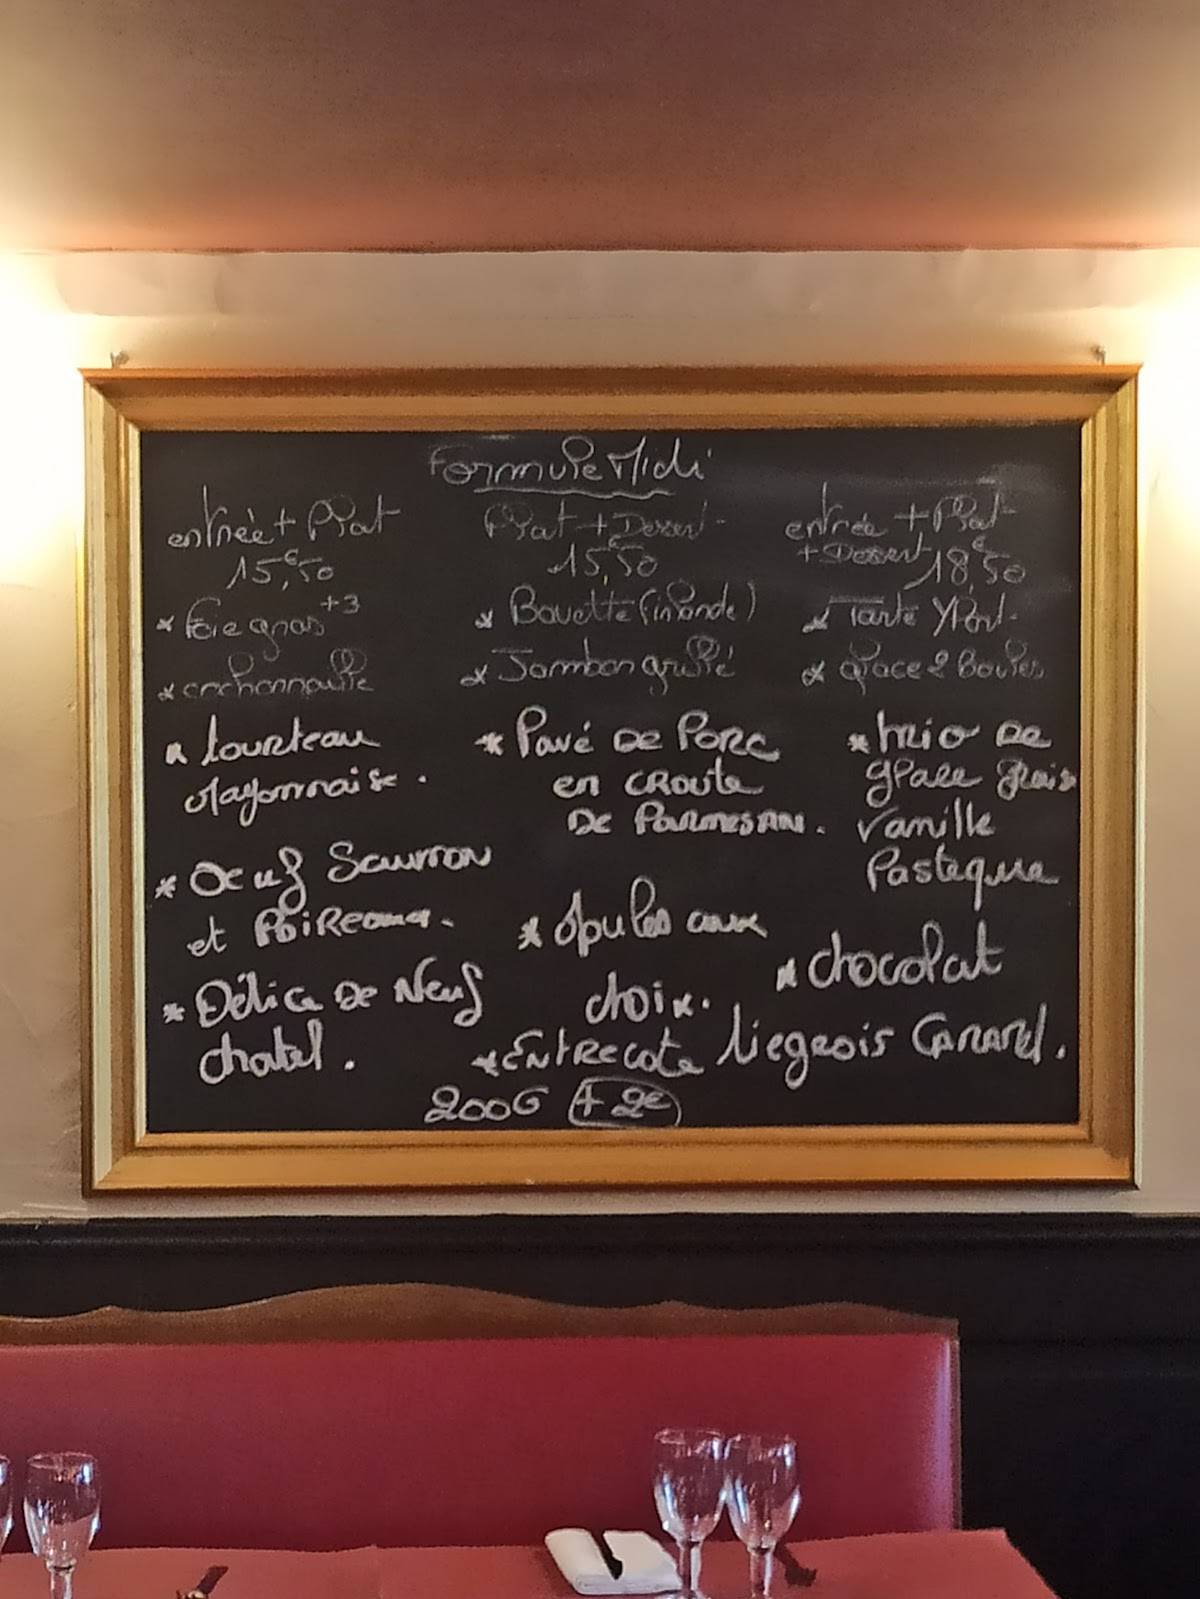 Formule Midi
entrée + Plat
15,€50
* Foie gras +3
* cochonnaille
* tourteau
Mayonnaise.
* Oeuf Saumon
et Poireaux.
* Délice de Neuf
chatel.
Plat + Dessert
15,€50
* Bavette (irlande)
* Jambon grillé
* Pavé de Porc
en croute
de Parmesan.
* Moules aux
choix.
* Entrecote
200G + 2€
entrée + Plat
+ Dessert 18,€50
* Tarte YPort
* glace 2 Boules
* trio de
glace frais
vanille
Pasteque
* chocolat
liegeois Caramel.